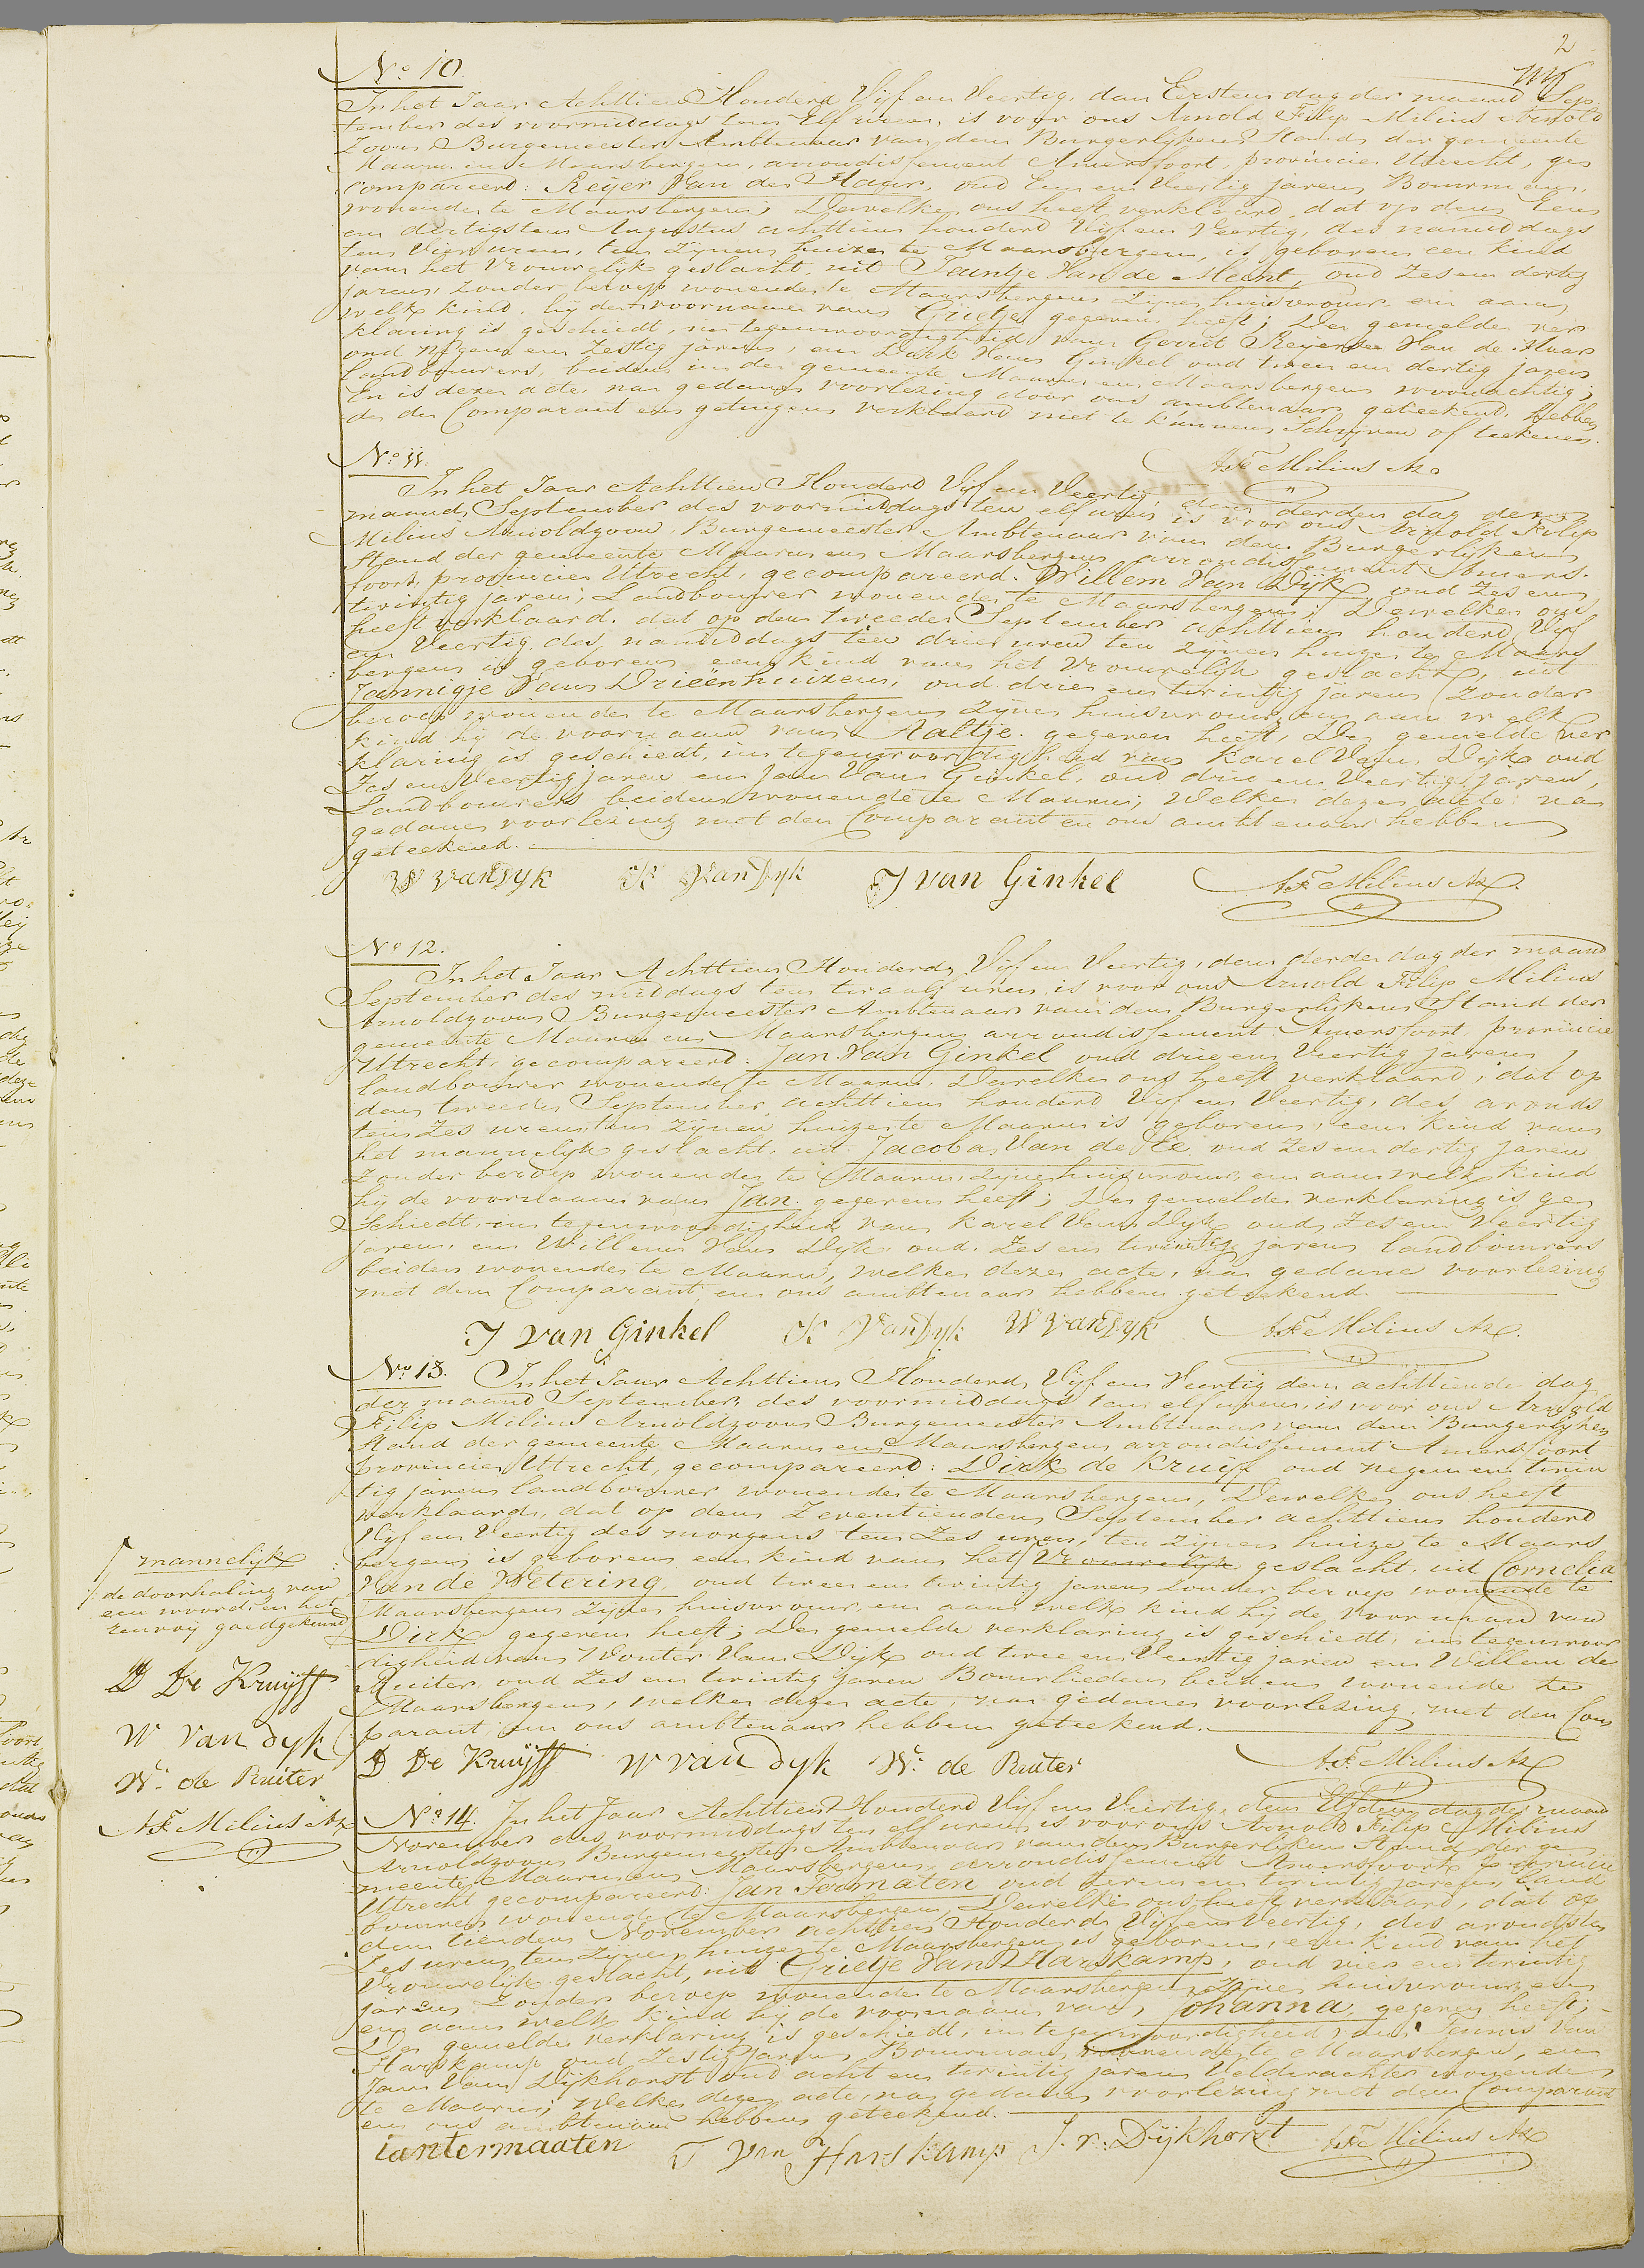 2
No 10.
In het Jaar Achttien Honderd Vijf en Veertig, den Eersten dag der maand Sep¬
tember des voormiddags ten Elf uren, is voor ons Arnold Filip Milius Arnold
Zoon Burgemeester Ambtenaar van den Burgerlijken Stand der gemeente
Maarn en Maarsbergen, arrondissement Amersfoort, provincie Utrecht, ge¬
compareerd: Reijer Van de Haar, oud Een en Veertig jaren, Bouwman,
wonende te Maarsbergen; Dewelke ons heeft verklaard, dat op den Een
en dertigsten Augustus achttien honderd Vijf en Veertig, des namiddags
ten Vier uren, ten zijnen huize te Maarsbergen, is geboren een kind
van het Vrouwelijk geslacht, uit Jaantje Van de Meent, oud Zes en dertig
jaren, zonder beroep wonende te Maarsbergen Zijne huisvrouw en aan
welk kind hij den voornamen van Grietje gegeven heeft; De gemelde ver
klaring is geschiedt, in tegenwoordigheid van Gerrit Reijerse Van de Haar
oud negen en Zestig jaren, en Dirk Van Ginkel oud twee en dertig jaren
Landbouwers, beiden in de gemeente Maarn en Maarsbergen woonachtig;
En is deze acte, na gedane voorlezing door ons ambtenaar geteekend. Hebben
de de Comparant en getuigen verklaard niet te kunnen Schrijven of teekenen.
A.F. Milius Az
No 11.
In het Jaar Achttien Honderd Vijf en Veertig, den derden dag der
maand September des voormiddags ten elf uren is voor ons Arnold Filip
Milius Arnoldzoon Burgemeester Ambtenaar van den Burgerlijken
Stand der gemeente Maarn en Maarsbergen arrondissement Amers-
foort, provincie Utrecht, gecompareerd. Willem Van Dijk oud Zes en
twintig jaren, Landbouwer wonende te Maarsbergen; Dewelke ons
heeft verklaard. dat op den tweede September achttien honderd Vijf
en Veertig, des namiddags ten drie uren ten zijnen huize te Maars
bergen is geboren een kind van het Vrouwelijk geslacht, uit
Jannigje Van Drieënhuizen, oud drie en twintig jaren Zonder
beroep wonende te Maarsbergen Zijne huisvrouw en aan welk
kind hij de voornaam van Aaltje. gegeven heeft, De gemelde ver
klaring is geschiedt, in tegenwoordigheid van Karel Van Dijk oud
Zes en Veertig jaren en Jan Van Ginkel, oud drie en Veertig jaren,
Landbouwers beiden wonende te Maarn, Welke deze acte na
gedane voorlezing met den Comparant en ons ambtenaar hebben
geteekend.
W van Dyk K Van Dyk J van Ginkel A.F. Milius Az
No 12.
In het Jaar Achttien Honderd Vijf en Veertig, den derde dag der maand
September des middags ten twaalf uren is voor ons Arnold Filip Milius
Arnoldzoon Burgemeester Ambtenaar van den Burgerlijken Stand der
gemeente Maarn en Maarsbergen arrondissement Amersfoort, provincie
Utrecht, gecompareerd: Jan Van Ginkel oud drie en Veertig jaren,
landbouwer wonende te Maarn, Dewelke ons heeft verklaard, dat op
den tweede September achttien honderd Vijf en Veertig, des avonds
ten Zes uren ten zijnen huize te Maarn is geboren, een kind van
het mannelijk geslacht, uit Jacoba Van de Pé. oud Zes en dertig jaren
Zonder beroep wonende te Maarn, zijne huisvrouw, en aan welk kind
hij de voornaam van Jan. gegeven heeft; De gemelde verklaring is ge
schiedt, in tegenwoordigheid van Karel Van Dijk oud, Zes en Veertig
jaren, en Willem Van Dijk oud Zes en twintig jaren landbouwers
beiden wonende te Maarn, welke deze acte, na gedane voorlezing
met den Comparant, en ons ambtenaar hebben geteekend.
J van Ginkel K Van Dyk W van Dyk A.F. Milius Az.
No 13. In het Jaar Achttien Honderd, Vijf en Veertig den achttiende dag
der maand September, des voormiddags ten elf uren, is voor ons Arnold
Filip Milius Arnoldzoon Burgemeester Ambtenaar van den Burgerlijken
Stand der gemeente Maarn en Maarsbergen arrondissement Amersfoort
provincie Utrecht, gecompareerd: Dirk de Kruif oud negen en twin
tig jaren landbouwer wonende te Maarsbergen, Dewelke ons heeft
verklaard, dat op den Zeventienden September achttien honderd
Vijf en Veertig des morgens ten Zes uren, ten Zijnen huize te Maars
bergen, is geboren een kind van het Vrouwelijk geslacht, uit Cornelia
Van de Wetering, oud twee en twintig jaren zonder beroep wonende te
Maarsbergen Zijne huisvrouw, en aan welk kind hij de Voornaam van
Dirk gegeven heeft; De gemelde verklaring is geschiedt, in tegenwoor
digheid van Wouter Van Dijk oud twee en Veertig jaren en Willem de
Ruiter, oud Zes en twintig jaren Bouwlieden beiden wonende te
Maarsbergen, welke deze acte, na gedane voorlezing met den Com
parant, en ons ambtenaar hebben geteekend.
D De Kruyff W van dyk Wm de Ruiter A.F. Milius Az
mannelijk
de doorhaling van
een woord en het
renvoij goedgekeurd
D De Kruyff
W van dyk
Wm de Ruiter
A.F. Milius Az
No 14. In het Jaar Achttien Honderd Vijf en Veertig, den Elfden dag der maand
November des voormiddags ten elf uren is voor ons Arnold Filip Milius
Arnoldzoon Burgemeester Ambtenaar van den Burgerlijken Stand der ge
meente Maarn en Maarsbergen arrondissement Amersfoort Provincie
Utrecht gecompareerd: Jan Termaten oud Zeven en twintig jaren, Land
bouwer wonende te Maarsbergen, Dewelke ons heeft verklaard, dat op
den tienden November achttien Honderd Vijf en Veertig, des avonds ten
Zes uren, ten Zijnen huize te Maarsbergen is geboren, een kind van het
Vrouwelijk geslacht, uit Grietje Van Harskamp, oud vier en twintig
jaren Zonder beroep wonende te Maarsbergen Zijne huisvrouw, en
en aan welk kind hij de voornaam van Johanna gegeven heeft;
De gemelde verklaring is geschiedt, in tegenwoordigheid van Teunis Van
Harskamp oud Zestig jaren, Bouwman, wonende te Maarsbergen, en
Jan Van Dijkhorst oud acht en twintig jaren Veldwachter wonende
te Maarn; Welke deze acte, na gedane voorlezing met den Comparant
en ons ambtenaar hebben geteekend.
iantermaaten T Van Harskamp J. v. Dijkhorst A.F. Milius Az